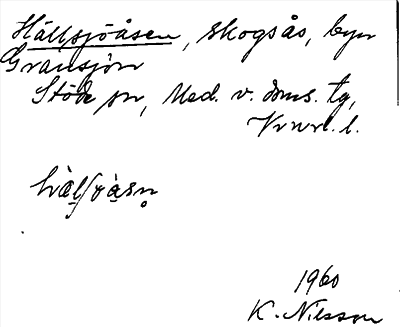 Hällsjöåsen, skogsås, byn
Gransjön
Stöde sn, Med. v. doms. tg,
Vrnrl. l.
1960
K. Nilsson